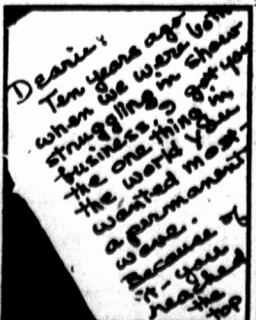 Dearie:
Ten years ago
when we were both
struggling in show
business, I got you
the one thing in
the world you
wanted most—
a permanent
wave.
Because of
it — you
reached
the
top